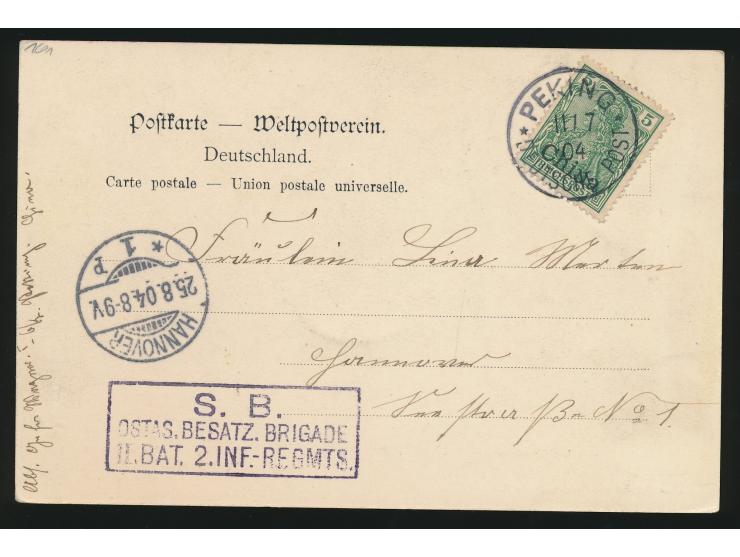 Postkarte — Weltpostverein.
Deutschland.
Carte postale — Union postale universelle.
PEKING
11 7
04
DEUTSCHE POST
5
China
REICHSPOST
HANNOVER
* 1 P
25.8.04.8-9V.
Fräulein Lina Merten
Hannover
Seestrasse No 1.
S. B.
OSTAS. BESATZ. BRIGADE
II. BAT. 2. INF.-REGMTS.
Peking. China.